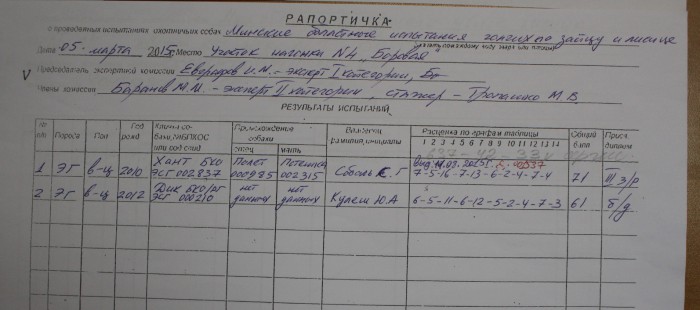 РАПОРТИЧКА
о проведенных испытаниях охотничьих собак Минские областные испытания гончих по зайцу и лисице
Дата 05 марта 2015г Место Участок нагонки N4 „Боровая"
V Председатель экспертной комиссии И.М. - эксперт I категории,
Члены комиссии Баранов М.М. - эксперт II категории, стажер - М.В.
РЕЗУЛЬТАТЫ ИСПЫТАНИЙ
№ п/п Порода Пол Год рожд Кличка собаки, №БПКОС или род спид Происхождение собаки отец мать Владелец фамилия, инициалы Расценка по графам таблицы 1 2 3 4 5 6 7 8 9 10 11 12 13 14 Общий балл Прис. диплом
1 ЭГ в-ц 2010 Хант БКО ЭСГ 002837 Полет 000985 Потешка 002315 Соболь Г 7-5-16-7-13-6-2-4-7-4 71 III з/р
2 ЭГ в-ц 2012 Дик БКО/эг ЭСГ 000210 нет данных нет данных Кулеш Ю.А 6-5-11-6-12-5-2-4-7-3 61 б/д